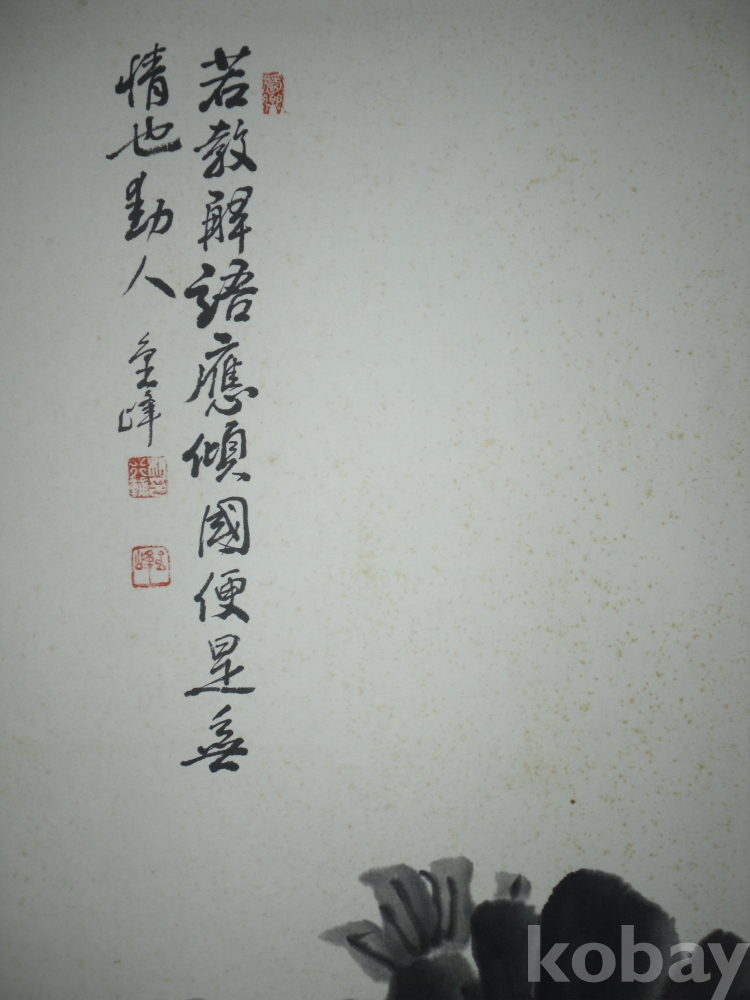 若教解語應傾國便是無
情也動人 峰
kobay